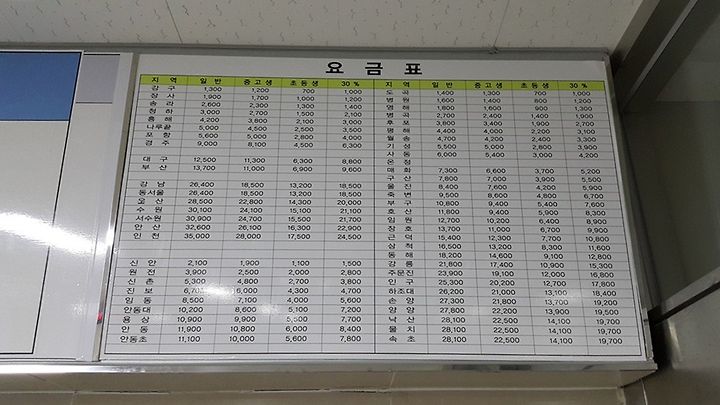 요금표
지역 일반 중고생 초등생 30%
강구 1,300 1,200 700 1,000
장사 1,900 1,700 1,000 1,200
송라 2,600 2,300 1,300 1,400
청하 3,000 2,700 1,500 2,100
흥해 4,200 3,800 2,100 3,000
나루끝 5,000 4,500 2,500 3,500
포항 5,600 5,000 2,800 4,000
경주 9,000 8,100 4,500 6,300
대구 12,500 11,300 6,300 8,800
부산 13,700 11,000 6,900 9,600
강남 26,400 18,500 13,200 18,500
동서울 26,400 18,500 13,200 18,500
오산 28,500 22,800 14,300 20,000
수원 30,100 24,100 15,100 21,100
서수원 30,900 24,700 15,500 21,700
안산 32,600 26,100 16,300 22,900
인천 35,000 28,000 17,500 24,500
신안 2,100 1,900 1,100 1,500
원전 3,900 2,500 2,000 2,800
신촌 5,300 4,800 2,700 3,800
진보 6,700 16,000 4,300 4,700
임동 8,500 7,100 4,000 5,600
안동대 10,200 8,600 5,100 7,200
용상 10,900 9,900 5,500 7,700
안동 11,900 10,800 6,000 8,400
안동초 11,100 10,000 5,600 7,800
지역 일반 중고생 초등생 30%
도곡 1,400 1,300 700 1,000
병원 1,600 1,400 800 1,200
영해 1,800 1,600 900 1,300
병곡 2,700 2,400 1,400 1,900
후포 3,800 3,400 1,900 2,700
평해 4,400 4,000 2,200 3,100
월송 4,700 4,200 2,400 3,300
기성 5,500 5,000 2,800 3,900
사동 6,000 5,400 3,000 4,200
온정
매화 7,300 6,600 3,700 5,200
구산 7,800 7,000 3,900 5,500
울진 8,400 7,600 4,200 5,900
죽변 9,500 8,600 4,800 6,700
부구 10,800 9,400 5,400 7,600
호산 11,800 9,400 5,900 8,300
임원 12,700 10,200 6,400 8,900
장호 13,700 11,000 6,700 9,900
근덕 15,400 12,300 7,700 10,800
삼척 16,500 13,200 8,300 11,600
동해 18,200 14,600 9,100 12,800
강릉 21,800 17,400 10,900 15,300
주문진 23,900 19,100 12,000 16,800
인구 25,300 20,200 12,700 17,800
하조대 26,200 21,000 13,100 18,400
손양 27,300 21,800 13,700 19,200
양양 27,800 22,200 13,900 19,500
낙산 28,100 22,500 14,100 19,700
물치 28,100 22,500 14,100 19,700
속초 28,100 22,500 14,100 19,700